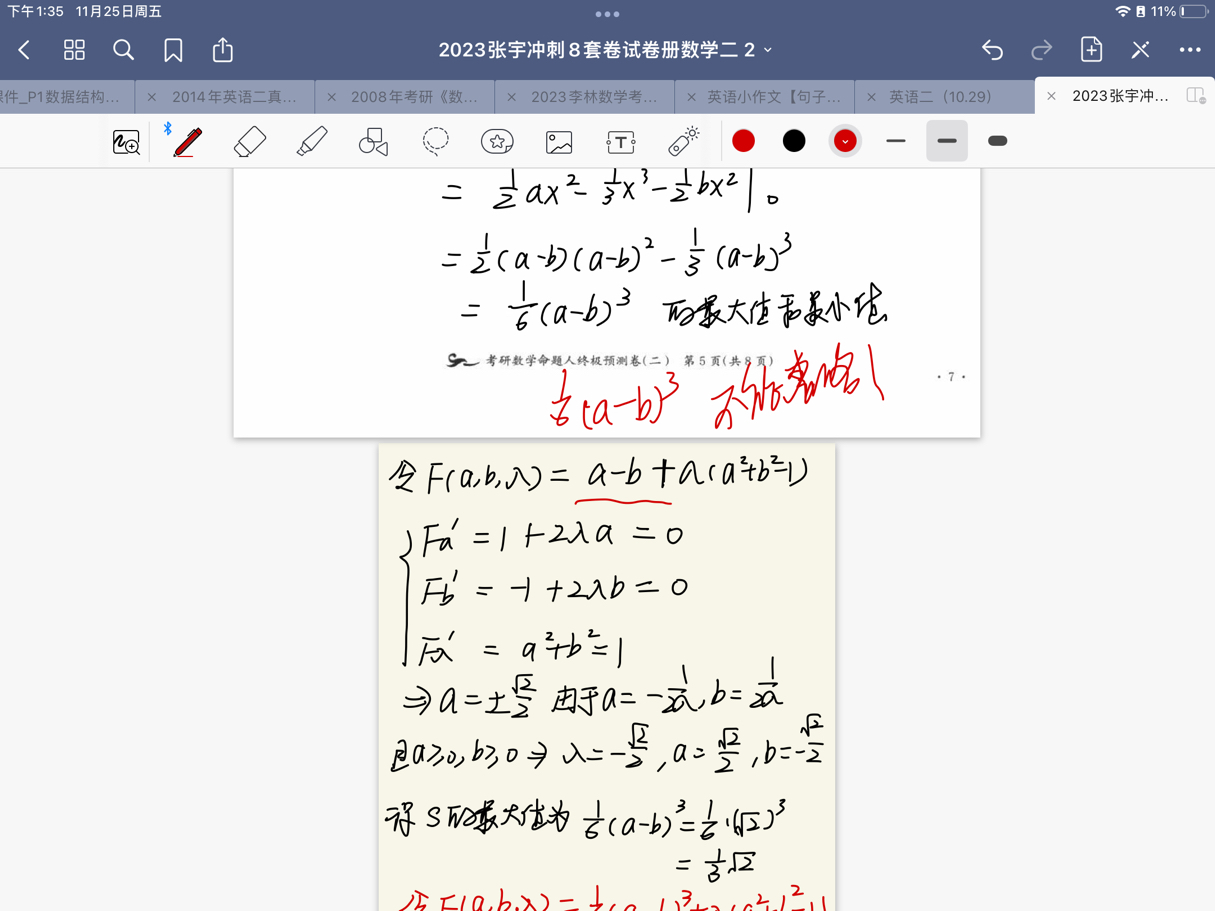 下午1:35 11月25日周五
11%
2023张宇冲刺8套卷试卷册数学二 2
课件_P1数据结构... × 2014年英语二真... × 2008年考研《数... × 2023李林数学考... × 英语小作文【句子... × 英语二（10.29） × 2023张宇冲...
= 1/2 ax² - 1/3 x³ - 1/2 bx² |₀
= 1/2 (a-b)(a-b)² - 1/3 (a-b)³
= 1/6 (a-b)³ 的最大值和最小值
考研数学命题人终极预测卷(二) 第5页(共8页)
· 7 ·
1/6 (a-b)³ 不能忽略!
令 F(a,b,λ) = a-b+λ(a²+b²-1)
Fa' = 1+2λa = 0
Fb' = -1+2λb = 0
Fλ' = a²+b²=1
⇒ a=±√2/2 由于a=-1/2λ, b=1/2λ
且a≥0, b≥0 ⇒ λ=-√2/2, a=√2/2, b=-√2/2
S的最大值为 1/6 (a-b)³ = 1/6 · (√2)³
= 1/3 √2
令 F(a,b,λ) =